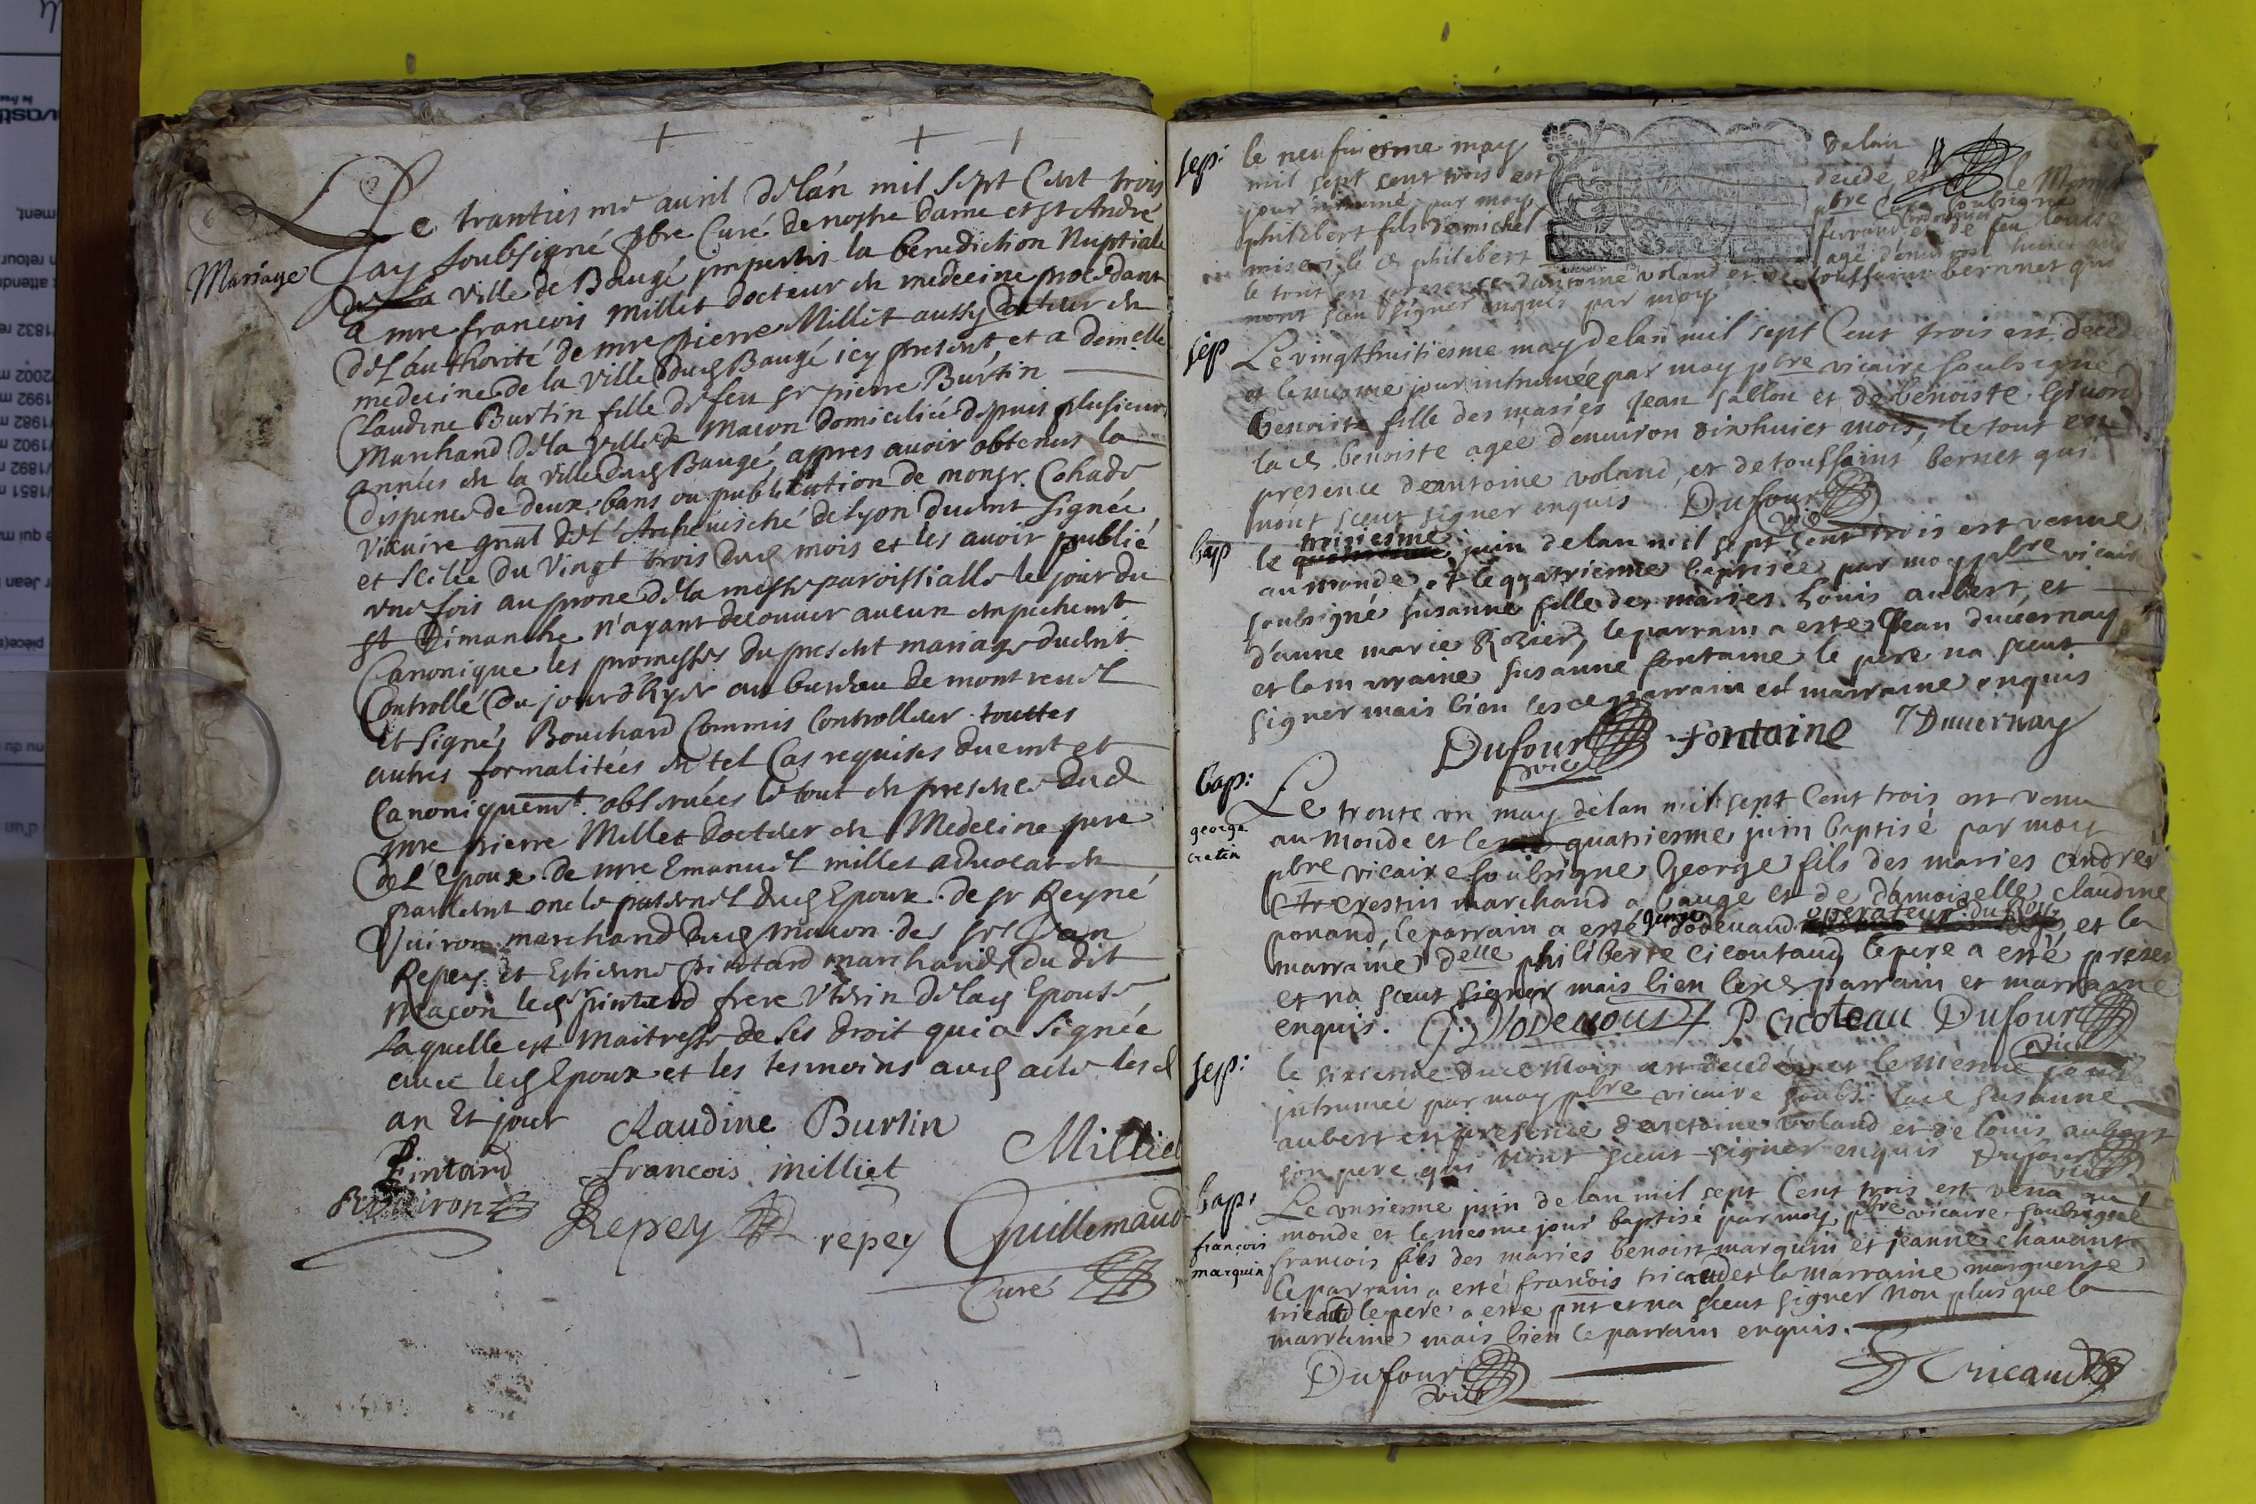 Mariage
Le trantiesme avril de lán mil sept Cent trois
Jay soubsigné pbre Curé de nostre dame et st André
de la ville de Baugé impertis la benediction Nuptiale
a mre francois Millet docteur en medecine procedant
de láuthorité de mre pierre Millet aussy docteur en
medecine de la ville dud Baugé icy present et a demelle
Claudine Burtin fille de feu sr pierre Burtin
Marchand de la ville de Macon domiciliée depuis plusieurs
années en la ville dud Baugé, appres avoir obtenus la
dispence de deux bans ou publication de monsr. Cohade
Vicaire gnal de l'Archevisché de lyon duemt signée
et scelée du vingt trois dud mois et les avoir publié
une fois au prone de la messe paroissialle le jour du
st Dimanche n'ayant decouver aucun empechemt
Canonique les promesses du present mariage duemt
Controllé du jour d'hyer au bureau de montrevel
et signés Bouchard Commis Controlleur touttes
autres formalitées en tel cas requises duemt et
Canoniquemt. observées le tout en presence dud
mre pierre Millet docteur en Medecine pere
de l'Epoux de mre Emanuel millet advocat en
parlemt oncle paternel dud Epoux de sr Reyné
Vuiron marchand dud macon des srs Jean
Repey et Estienne pintard marchands du dit
Macon led pintard frere Uterin de lad Epouse
Laquelle est maitresse de ses droit qui a signée
avec led Epoux et les tesmoins aud acte lesd
an Et jour Claudine Burtin
Pintard francois milliet Milliet
R Vuiron Repey repey Guillemaud
Curé
sep: le neufviesme may de lan
mil sept cent trois est decedé et le mesme
jour inhumé par moy pbre curé soubsigné
philebert fils de michel ferrand cordonnier et de feu louise
le d philebert agé denviron huict ans
le tout en presence dantoine voland et de toussaint bernnet qui
nont sceu signer enquis par moy
sep Le vingthuitiesme may de lan mil sept Cent trois est decedée
et le mesme jour inhumée par moy pbre vicaire soubsigné
benoiste fille des mariés Jean sallon et de benoiste
lad benoiste agée denviron dixhuict mois, le tout en
presence dantoine voland, et de toussaint bernet qui
nont sceut signer enquis Dufour
vic
bap le troisiesme juin de lan mil sept Cent trois est venue
au monde et le quatriesme baptisée par moy pbre vicaire
soubsigné susanne fille des mariés Louis aubert, et
d'anne marie Rozier, le parrain a esté Jean duvernay
et la marraine susanne fontaine le pere na sceut
signer mais bien lesd parrain et marraine enquis
Dufour fontaine J Duvernay
vic
bap: Le trente un may de lan mil sept Cent trois est venu
george
cretin
au monde et le quatriesme juin baptisé par moy
pbre vicaire soubsigne George fils des maries andré
crestin marchand a bauge et de damoiselle claudine
ponand, le parrain a esté george dodevand operateur du Roy, et la
marraine delle philiberte Cicoutaud, le pere a esté present
et na sceut signer mais bien lesd parrain et marraine
enquis. G. Dodevout P Cicoteau Dufour
vic
sep: le sixiesme du ce mois est decedée et le mesme jour
inhumée par moy pbre vicaire soubs: lad susanne
aubert en presence dantoine voland et de louis aubert
son pere, qui n'ont sceut signer enquis Dufour
vic
bap: Le unziesme juin de lan mil sept Cent trois est venu au
francois
marguin
monde et le mesme jour baptisé par moy pbre vicaire soubsigné
francois fils des mariés benoist marguin et jeanne chavant
le parrain a esté francois tricaud et la marraine marguerite
tricaud le pere a este pnt et na sceut signer non plus que la
marraine mais bien le parrain enquis.
Dufour Tricaud
vic